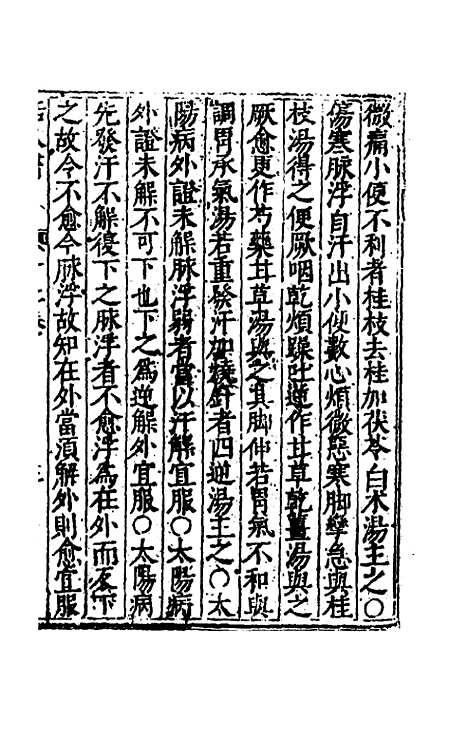 微痛小便不利者桂枝去桂加茯苓白朮湯主之〇
傷寒脉浮自汗出小便數心煩微惡寒脚攣急與桂
枝湯得之便厥咽乾煩躁吐逆作甘草乾薑湯與之
厥愈更作芍藥甘草湯與之其脚伸若胃氣不和與
調胃承氣湯若重發汗加燒針者四逆湯主之〇太
陽病外證未解脉浮弱者當以汗解宜服〇太陽病
外證未解不可下也下之爲逆解外宜服〇太陽病
先發汗不解復下之脉浮者不愈浮爲在外而反下
之故令不愈今脉浮故知在外當須解外則愈宜服